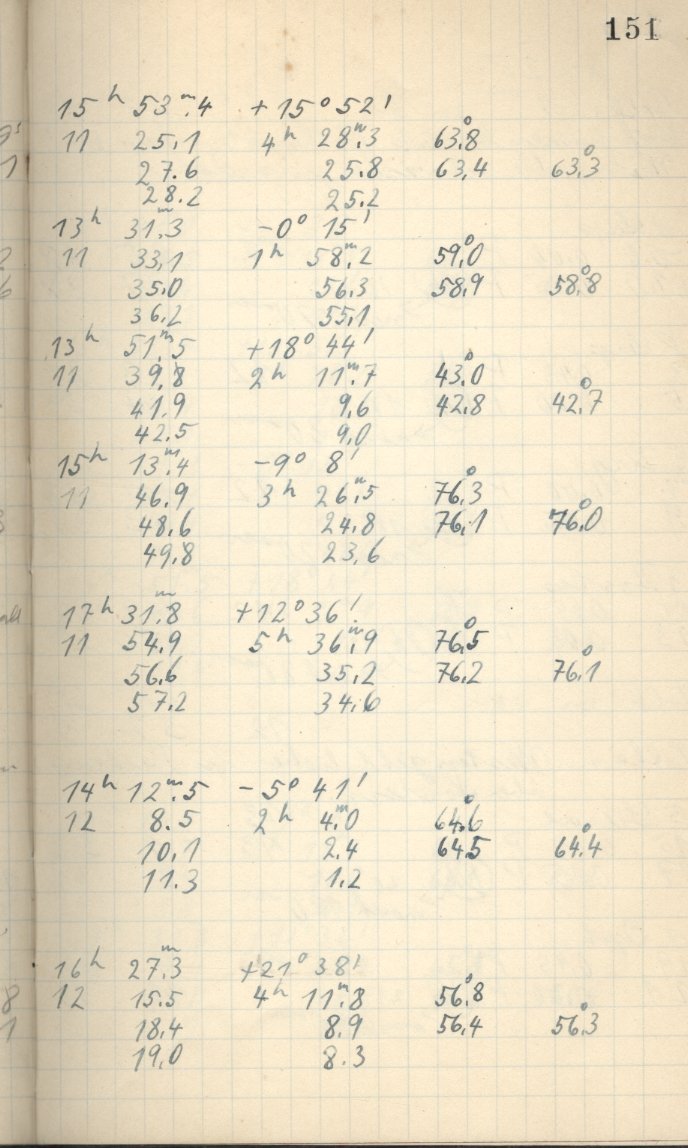 151
15ʰ 53ᵐ.4 +15° 52'
11 25.1 4ʰ 28ᵐ.3 63.°8
27.6 25.8 63.4 63.°3
28.2 25.2
13ʰ 31.ᵐ3 -0° 15'
11 33.1 1ʰ 58.ᵐ2 59.°0
35.0 56.3 58.9 58.°8
36.2 55.1
13ʰ 51.ᵐ5 +18° 44'
11 39.8 2ʰ 11.ᵐ7 43.°0
41.9 9.6 42.8 42.°7
42.5 9.0
15ʰ 13.ᵐ4 -9° 8'
11 46.9 3ʰ 26.ᵐ5 76.°3
48.6 24.8 76.1 76.°0
49.8 23.6
17ʰ 31.ᵐ8 +12° 36'
11 54.9 5ʰ 36.ᵐ9 76.°5
56.6 35.2 76.2 76.°1
57.2 34.6
14ʰ 12ᵐ.5 -5° 41'
12 8.5 2ʰ 4.ᵐ0 64.°6
10.1 2.4 64.5 64.°4
11.3 1.2
16ʰ 27.ᵐ3 +21° 38'
12 15.5 4ʰ 11.ᵐ8 56.°8
18.4 8.9 56.4 56.°3
19.0 8.3